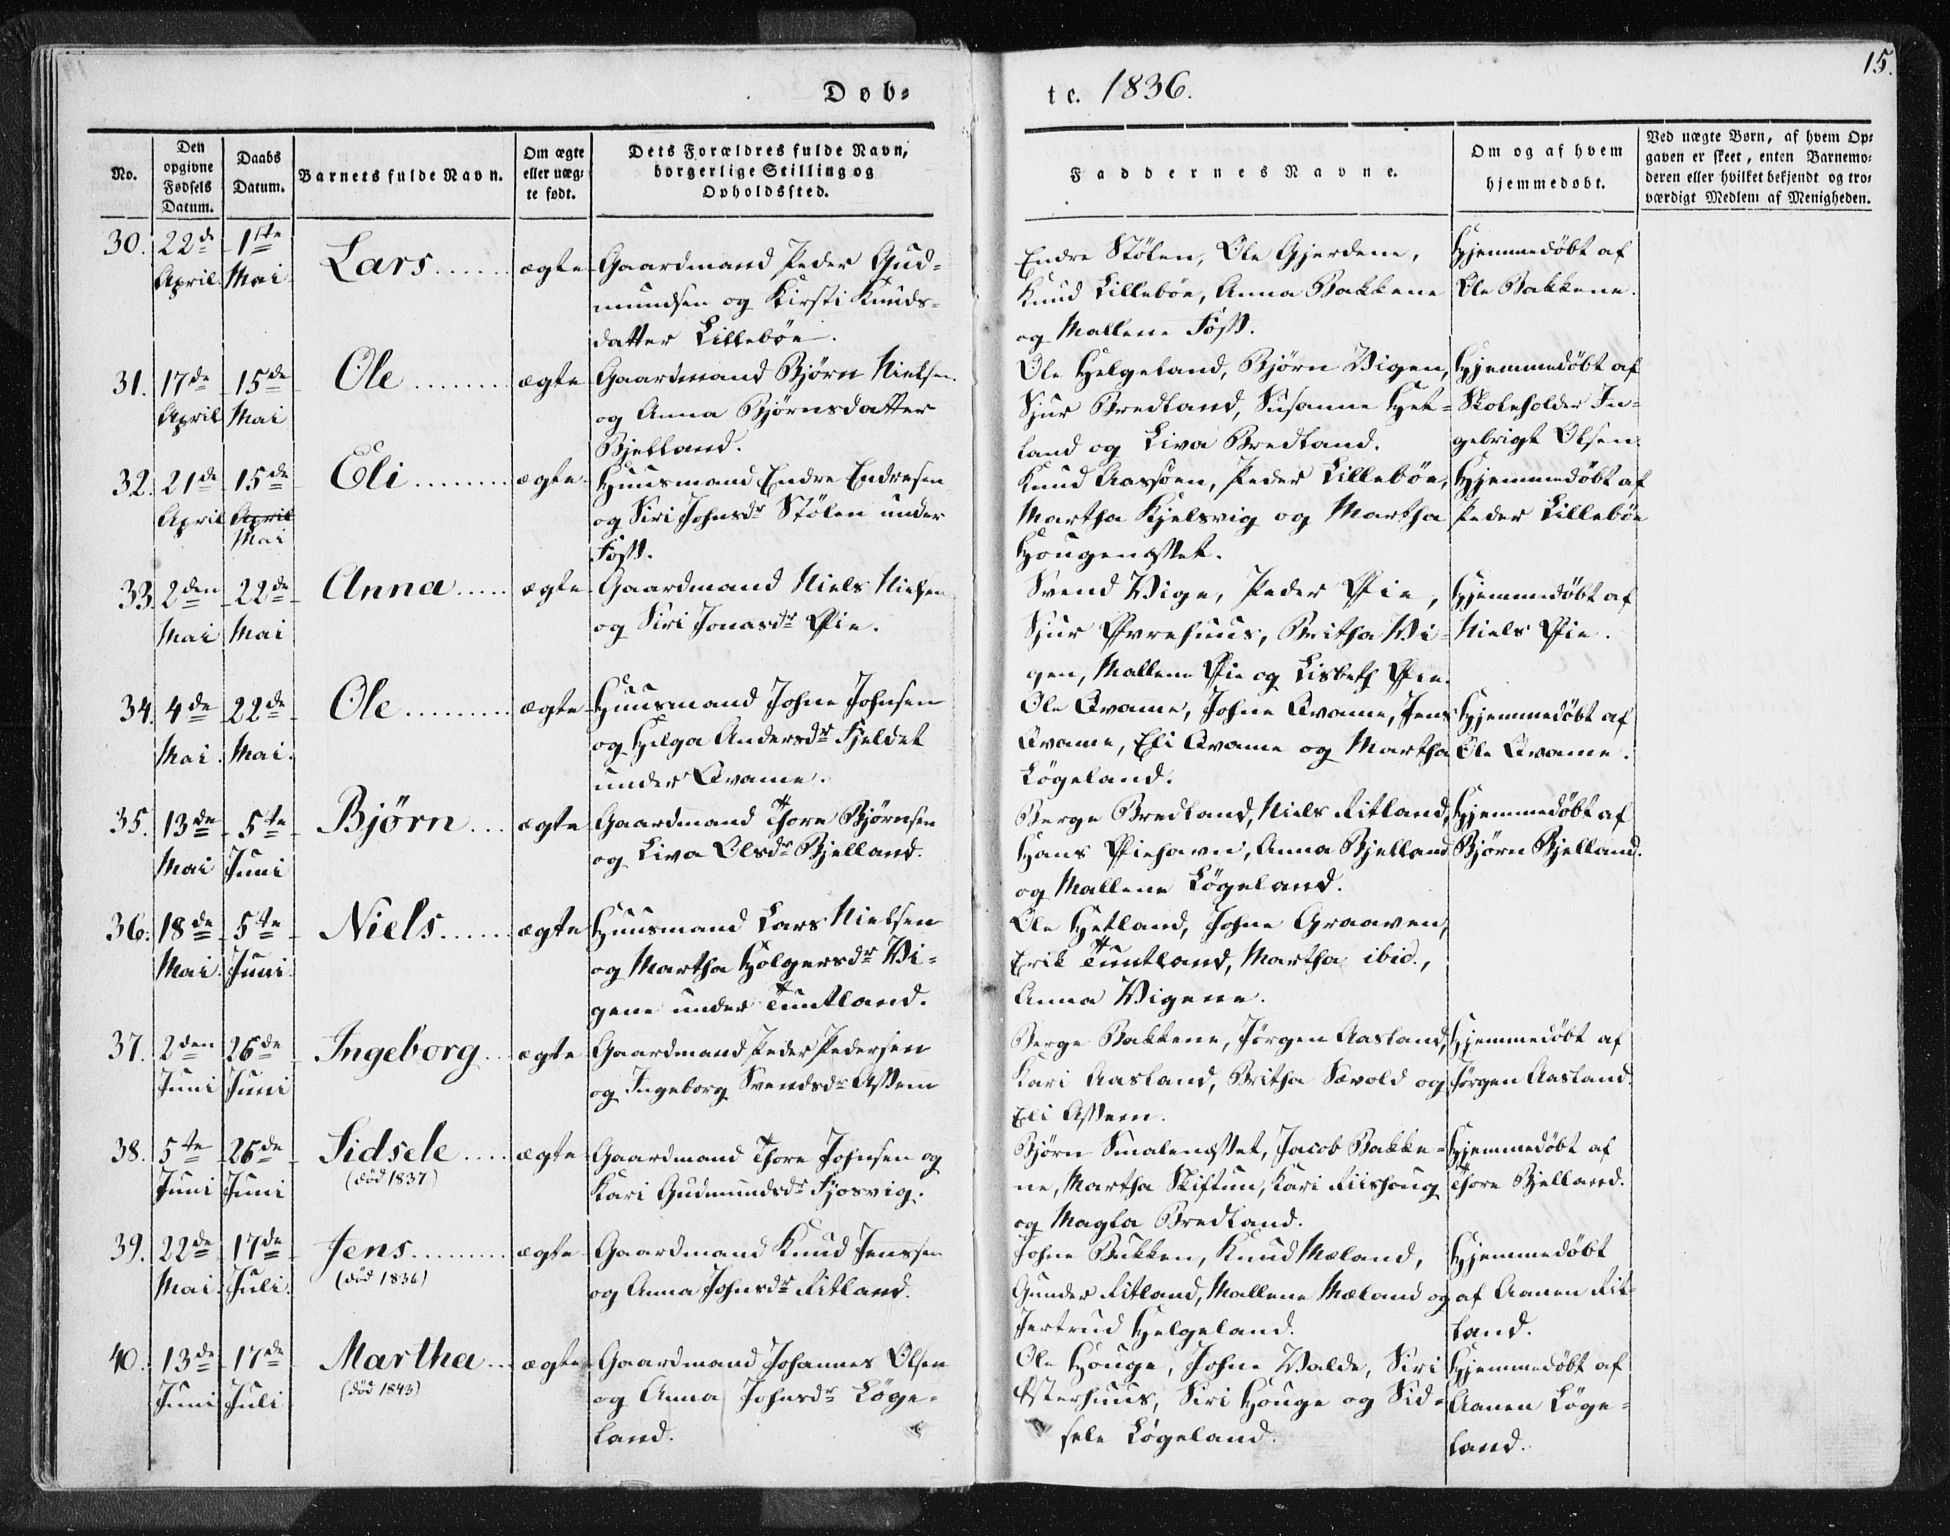 15.
Døb-
te. 1836.
No.
Den opgivne Fødsels Datum.
Daabs Datum.
Barnets fulde Navn.
Om ægte eller uægte født.
Dets Forældres fulde Navn, borgerlige Stilling og Opholdssted.
Faddernes Navne.
Om og af hvem hjemmedøbt.
Ved uægte Børn, af hvem Opgaven er skeet, enten Barnemoderen eller hvilket bekjendt og troværdigt Medlem af Menigheden.
30. 22de April 1ste Mai Lars ...... ægte
Gaardmand Peder Gud-
mundsen og Kirsti Knuds-
datter Lillebøe.
Endre Stølen, Ole Gjerdene,
Knud Lillebøe, Anna Bakkene
og Mallene Foss.
Hjemmedøbt af
Ole Bakkene.
31. 17de April 15de Mai Ole ........ ægte
Gaardmand Bjørn Nielsen
og Anna Bjørnsdatter
Bjelland.
Ole Helgeland, Bjørn Vigen,
Sjur Bredland, Susanne Het-
land og Liva Bredland.
Hjemmedøbt af
Skoleholder In-
gebrigt Olsen.
32. 21de April 15de April Mai Eli ........ ægte
Huusmand Endre Endresen
og Siri Johnsdr Stølen under
Foss.
Knud Aasoen, Peder Lillebøe,
Martha Kjelsvig og Martha
Hougenæsset.
Hjemmedøbt af
Peder Lillebøe
33. 2den Mai 22de Mai Anna ..... ægte
Gaardmand Niels Nielsen
og Siri Jonasdr Øie.
Svend Vige, Peder Øie,
Sjur Øvrehuus, Britha Vi-
gen, Mallene Øie og Lisbeth Øie.
Hjemmedøbt af
Niels Øie.
34. 4de Mai. 22de Mai. Ole ......... ægte
Huusmand Johne Johnsen
og Helga Andersdr Fjeldet
under Qvame.
Ole Qvame, Johne Qvame, Jens
Qvame, Eli Qvame og Martha
Løgeland.
Hjemmedøbt af
Ole Qvame.
35. 13de Mai 5te Juni Bjørn ... ægte
Gaardmand Thore Bjørnsen
og Liva Olsdr Bjelland.
Berge Bredland, Niels Ritland,
Hans Øiehavn, Anna Bjelland
og Mallene Løgeland.
Hjemmedøbt af
Bjørn Bjelland.
36. 18de Mai 5te Juni Niels ...... ægte
Huusmand Lars Nielsen
og Martha Holgersdr Vi-
gene under Tuntland.
Ole Hetland, Johne Graaven,
Erik Tuntland, Martha ibid.,
Anna Vigene.
37. 2den Juni 26de Juni Ingeborg .. ægte
Gaardmand Peder Pedersen
og Ingeborg Svendsdr Assem
Berge Bakkene, Jørgen Aasland,
Kari Aasland, Britha Sævold og
Eli Assem.
Hjemmedøbt af
Jørgen Aasland.
38. 5te Juni 26de Juni Sidsele .... ægte
(død 1837)
Gaardmand Thore Johnsen og
Kari Gudmundsdr Fjosvig.
Bjørn Smalenæsset, Jacob Bakke-
ne, Martha Skiftun, Kari Riishoug
og Magla Bredland.
Hjemmedøbt af
Thore Bjelland.
39. 22de Mai 17de Juli Jens ......... ægte
(død 1836)
Gaardmand Knud Jenssen
og Anna Johnsdr Ritland.
Johne Bukken, Knud Mæland,
Gunder Ritland, Mallene Mæland og
Jertrud Helgeland.
Hjemmedøbt
af Aanen Rit-
land.
40. 13de Juni 17de Juli Martha ... ægte
(død 1843)
Gaardmand Johannes Olsen
og Anna Johnsdr Løge-
land.
Ole Houge, Johne Valde, Siri
Østerhuus, Siri Houge og Sid-
sele Løgeland.
Hjemmedøbt af
Aanen Løge-
land.